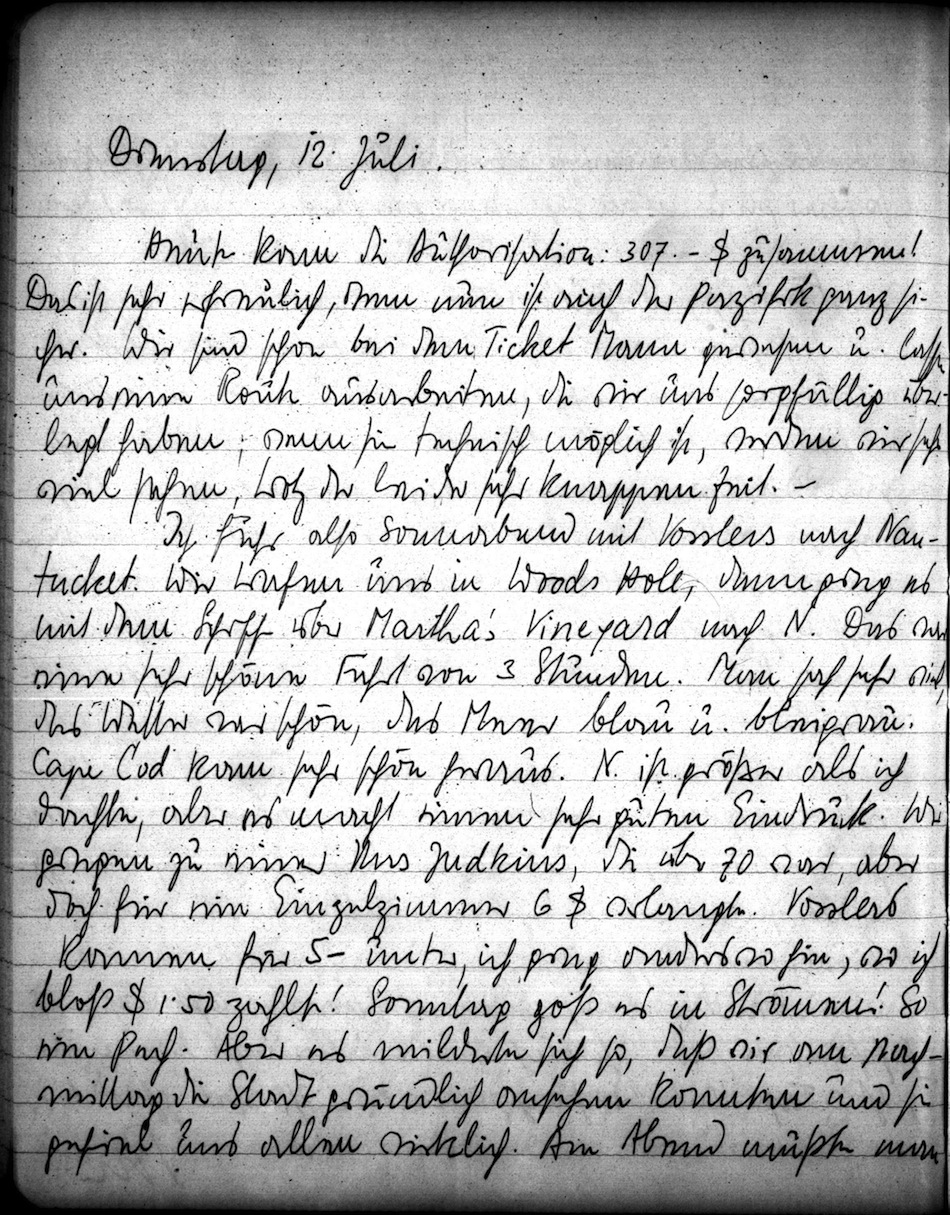 Dienstag, 12. Juli.
Heute kam die Authorisation: 307.- $ zusammen!
Das ist sehr erfreulich, denn nun ist auch der Pazifik ganz si-
cher. Wir sind schon bei dem Ticket Mann gewesen u. lassen
uns eine Route ausarbeiten, die wir uns sorgfältig über-
legt haben; wenn sie technisch möglich ist, werden wir sehr
viel sehen, trotz der leider sehr knappen Zeit. -
Ich fuhr also Sonnabend mit Vosslers nach Nan-
tucket. Wir trafen uns in Woods Hole, dann ging es
mit dem Schiff über Martha's Vineyard nach N. Das war
eine sehr schöne Fahrt von 3 Stunden. Man sah sehr viel,
das Wetter war schön, das Meer blau u. bleigrau.
Cape Cod kam sehr schön heraus. N. ist größer als ich
dachte, aber es macht einen sehr guten Eindruck. Wir
gingen zu einer Mrs Judkins, die über 70 war, aber
doch für ein Einzelzimmer 6 $ verlangte. Vosslers
kamen für 5- unter, ich ging anderswo hin, wo ich
bloß $ 1.50 zahlte! Sonntag goß es in Strömen! So
ein Pech. Aber es milderte sich so, daß wir am Nach-
mittag die Stadt gründlich ansehen konnten und sie
gefiel uns allen wirklich. Am Abend mußte man